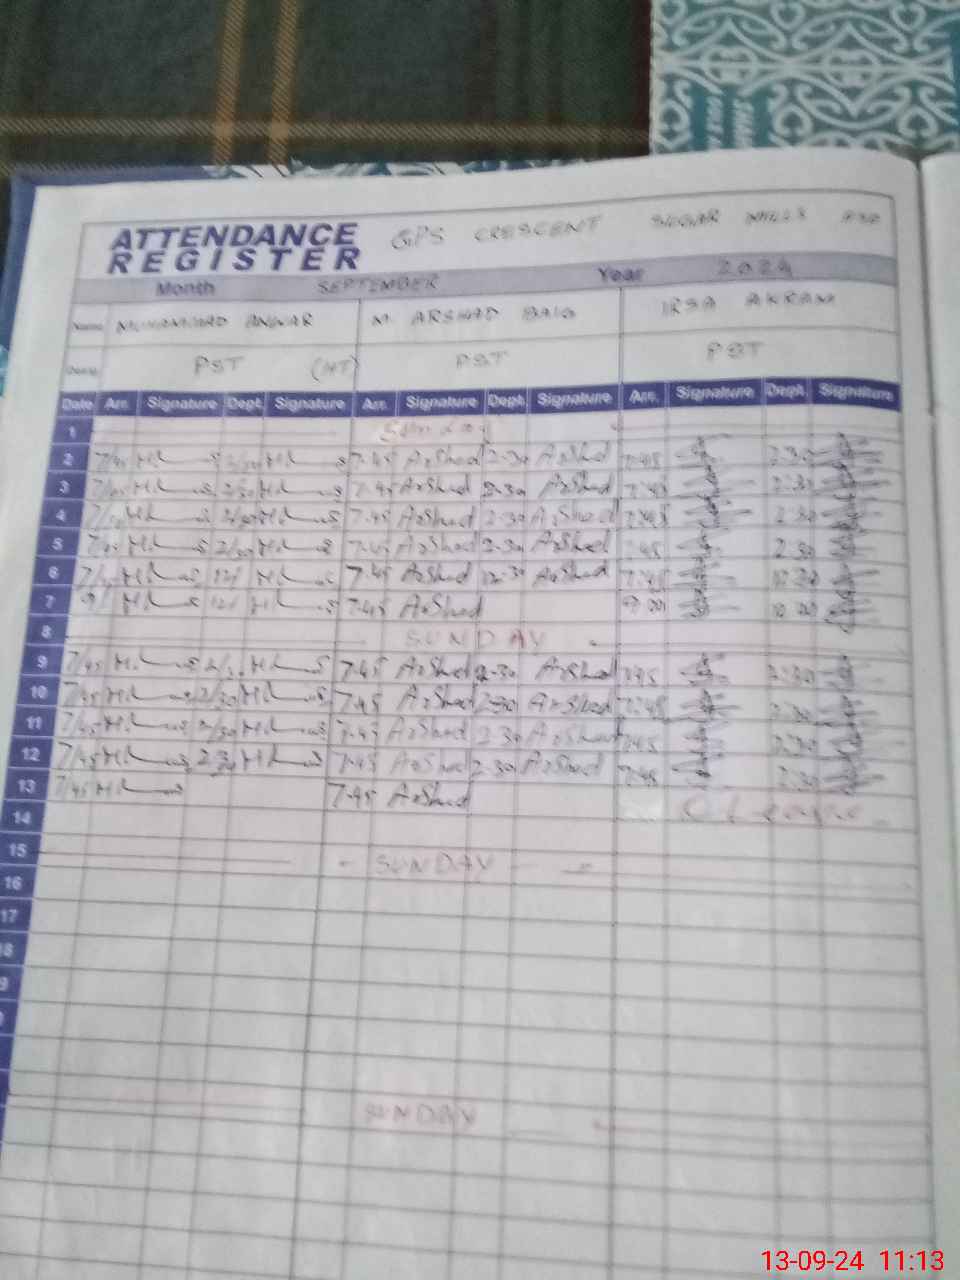 ATTENDANCE REGISTER GPS CRESCENT SUGAR MILLS
Month SEPTEMBER Year 2024
Name MUHAMMAD ANWAR M. ARSHAD BAIG IRSA AKRAM
Desig. PST (HT) PST PST
Date Arr. Signature Dept. Signature Arr. Signature Dept. Signature Arr. Signature Dept. Signature
1 Sunday
2 7/45 2/30 7.45 Arshad 2-30 Arshad 7:45 2:30
3 7/45 2/30 7.45 Arshad 2-30 Arshad 7:45 2:30
4 2/30 7.45 Arshad 2-30 Arshad 7:45 2:30
5 7/45 2/30 7.45 Arshad 2-30 Arshad :45 2:30
6 12/ 7.45 Arshad 12-30 Arshad 7:45 12:30
7 9/ 12/ 7.45 Arshad 9:00
8 SUNDAY
9 7/45 7.45 Arshad 2-30 Arshad 7:45 2:30
10 7/45 2/30 7.45 Arshad 2-30 Arshad 7:45 2:30
11 7/45 2/30 7.45 Arshad 2-30 Arshad 7:45 2:30
12 7/45 2/30 7.45 Arshad 2-30 Arshad 7:45 2:30
13 7/45 7.45 Arshad Leave
14
15 - SUNDAY -
16
17
18
9
SUNDAY
13-09-24 11:13